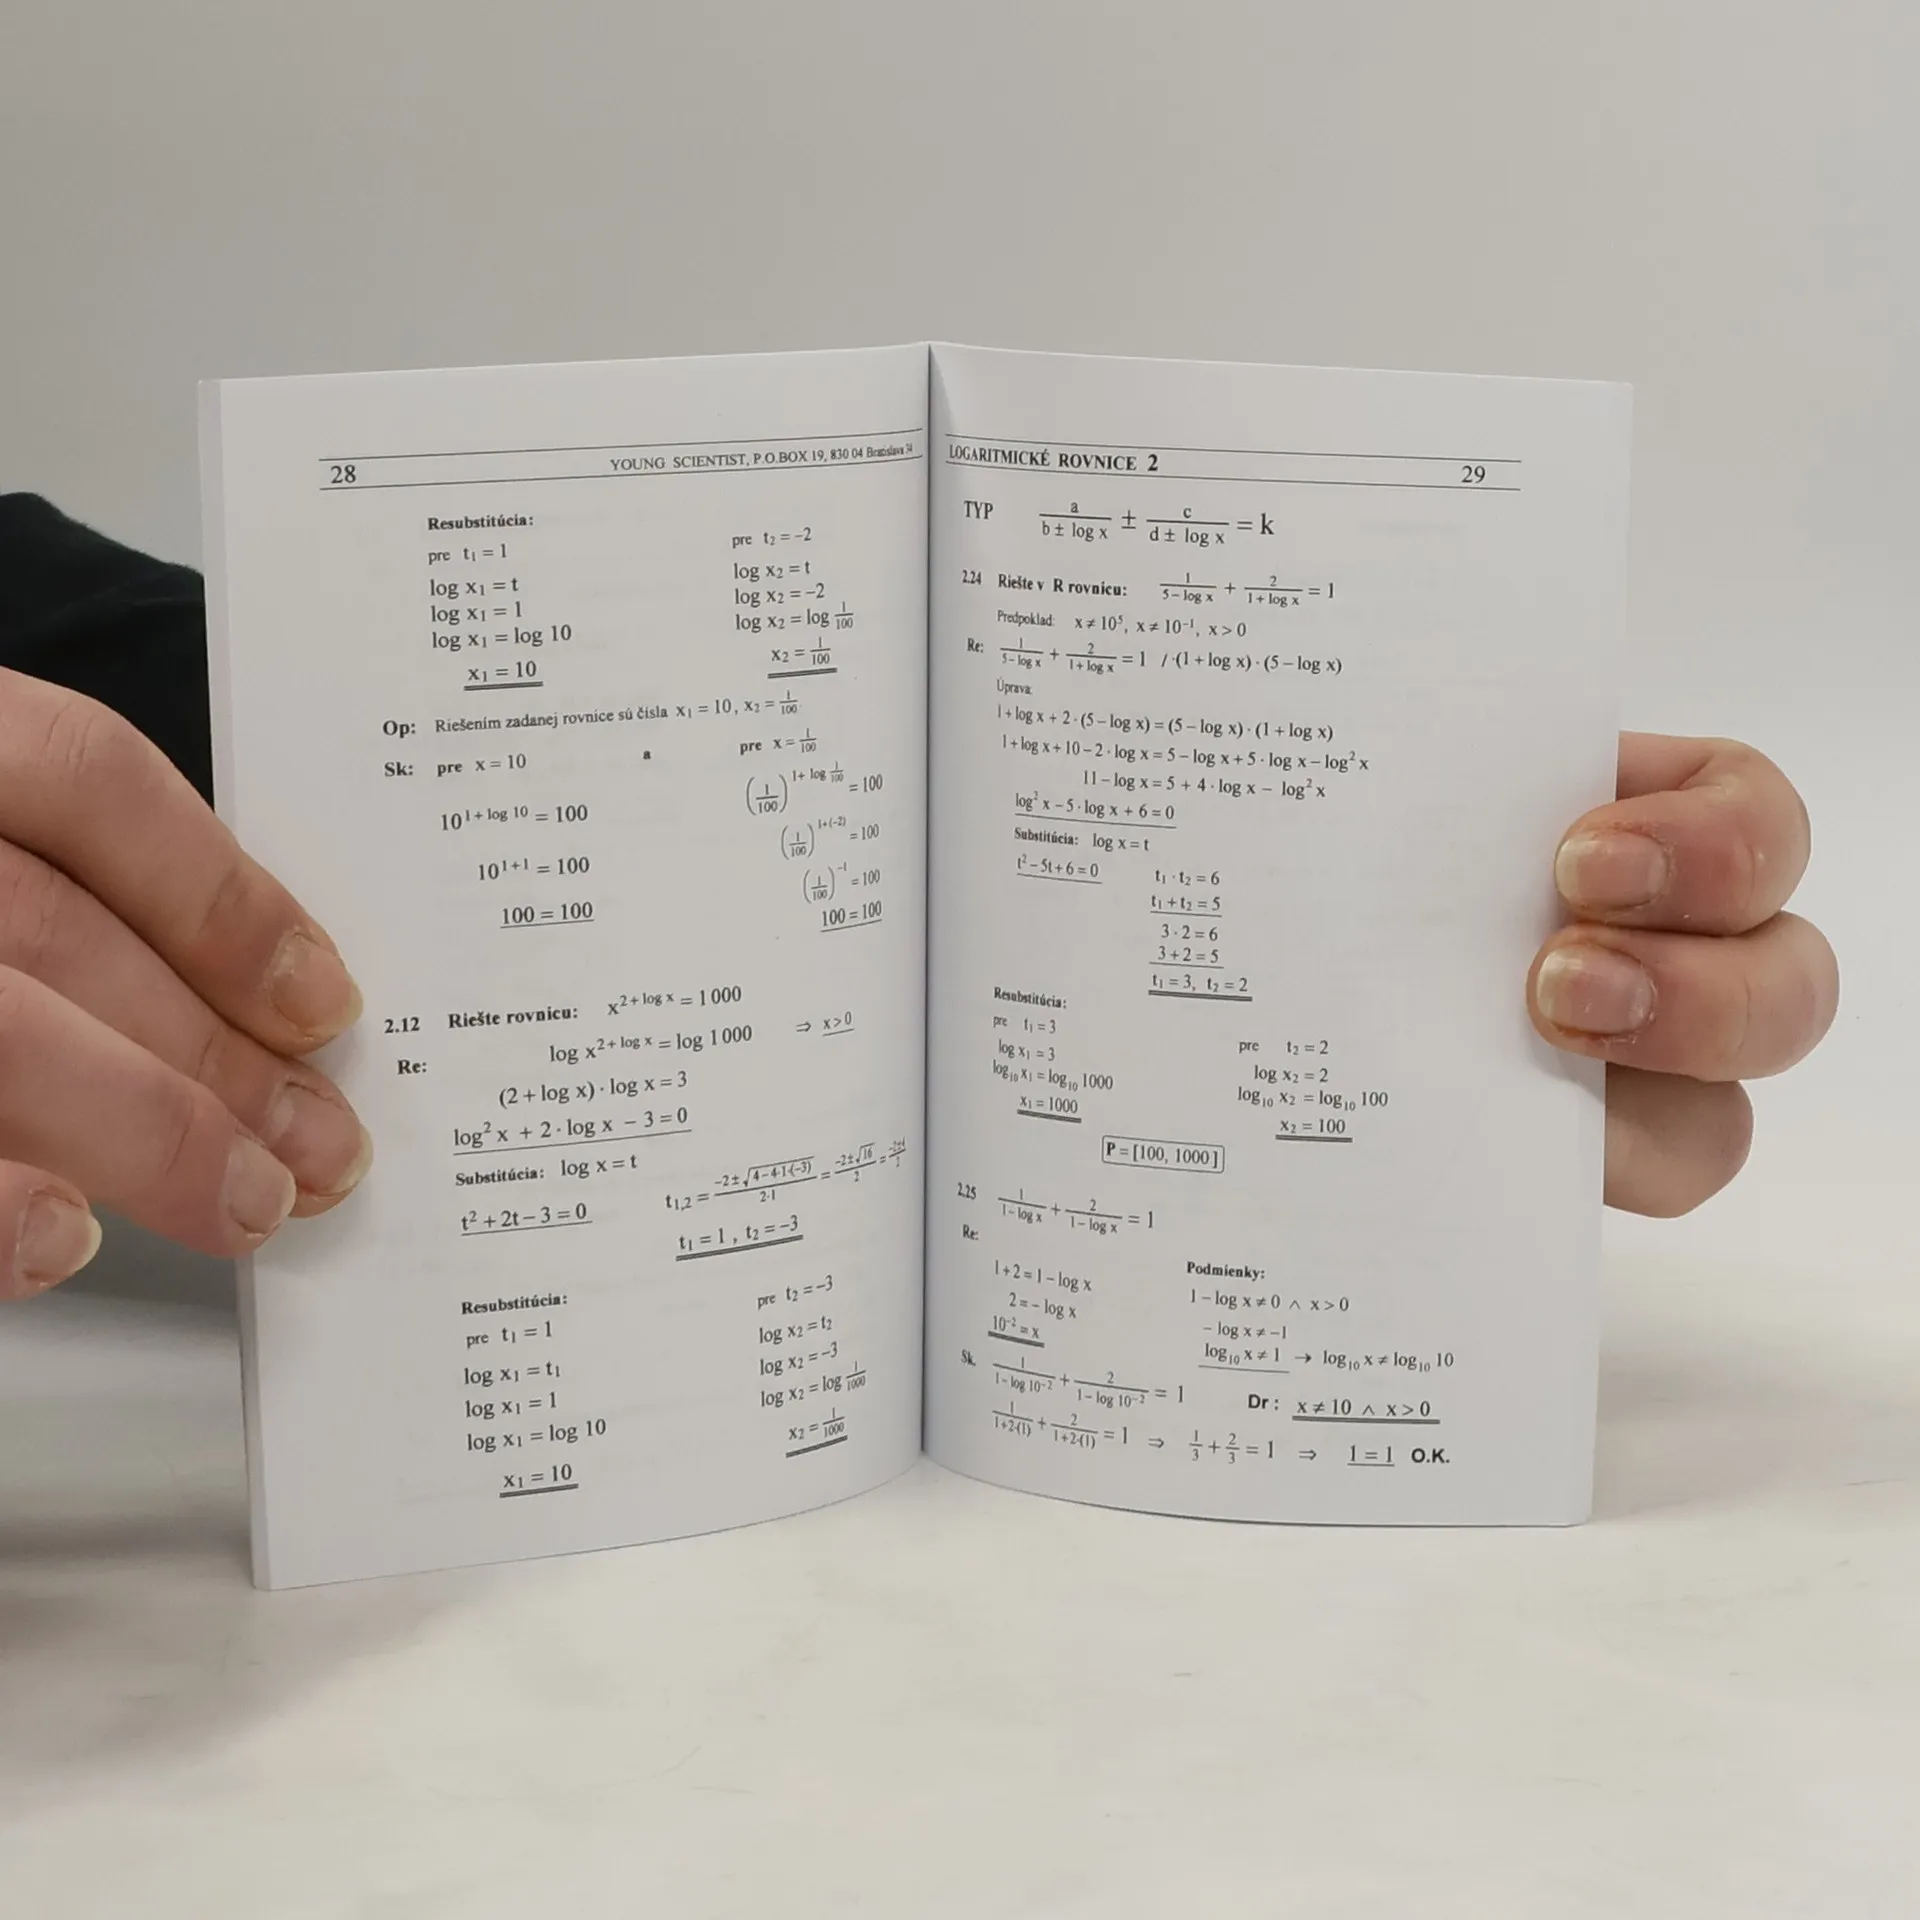 28 YOUNG SCIENTIST, P.O.BOX 19, 830 04 Bratislava 34
Resubstitúcia:
pre t₁ = 1
log x₁ = t
log x₁ = 1
log x₁ = log 10
x₁ = 10
pre t₂ = −2
log x₂ = t
log x₂ = −2
log x₂ = log 1/100
x₂ = 1/100
Op: Riešením zadanej rovnice sú čísla x₁ = 10, x₂ = 1/100.
Sk: pre x = 10 a pre x = 1/100
10^(1 + log 10) = 100
10^(1+1) = 100
100 = 100
(1/100)^(1+ log 1/100) = 100
(1/100)^(1+(−2)) = 100
(1/100)^(−1) = 100
100 = 100
2.12 Riešte rovnicu: x^(2 + log x) = 1 000
Re: log x^(2 + log x) = log 1 000 ⇒ x > 0
(2 + log x) · log x = 3
log² x + 2 · log x − 3 = 0
Substitúcia: log x = t
t² + 2t − 3 = 0
t₁,₂ = (−2 ± √(4 − 4·1·(−3)))/(2·1) = (−2 ± √16)/2 = (−2±4)/2
t₁ = 1 , t₂ = −3
Resubstitúcia:
pre t₁ = 1
log x₁ = t₁
log x₁ = 1
log x₁ = log 10
x₁ = 10
pre t₂ = −3
log x₂ = t₂
log x₂ = −3
log x₂ = log 1/1000
x₂ = 1/1000
LOGARITMICKÉ ROVNICE 2 29
TYP a/(b ± log x) ± c/(d ± log x) = k
2.24 Riešte v R rovnicu: 1/(5 − log x) + 2/(1 + log x) = 1
Predpoklad: x ≠ 10⁵, x ≠ 10⁻¹, x > 0
Re: 1/(5 − log x) + 2/(1 + log x) = 1 / ·(1 + log x) · (5 − log x)
Úprava:
1 + log x + 2 · (5 − log x) = (5 − log x) · (1 + log x)
1 + log x + 10 − 2 · log x = 5 − log x + 5 · log x − log² x
11 − log x = 5 + 4 · log x − log² x
log² x − 5 · log x + 6 = 0
Substitúcia: log x = t
t² − 5t + 6 = 0
t₁ · t₂ = 6
t₁ + t₂ = 5
3 · 2 = 6
3 + 2 = 5
t₁ = 3, t₂ = 2
Resubstitúcia:
pre t₁ = 3
log x₁ = 3
log₁₀ x₁ = log₁₀ 1000
x₁ = 1000
pre t₂ = 2
log x₂ = 2
log₁₀ x₂ = log₁₀ 100
x₂ = 100
P = [100, 1000]
2.25 1/(1 − log x) + 2/(1 − log x) = 1
Re:
1 + 2 = 1 − log x
2 = − log x
10⁻² = x
Podmienky:
1 − log x ≠ 0 ∧ x > 0
− log x ≠ −1
log₁₀ x ≠ 1 → log₁₀ x ≠ log₁₀ 10
Sk. 1/(1 − log 10⁻²) + 2/(1 − log 10⁻²) = 1
Dr : x ≠ 10 ∧ x > 0
1/(1+2·(1)) + 2/(1+2·(1)) = 1 ⇒ 1/3 + 2/3 = 1 ⇒ 1 = 1 O.K.